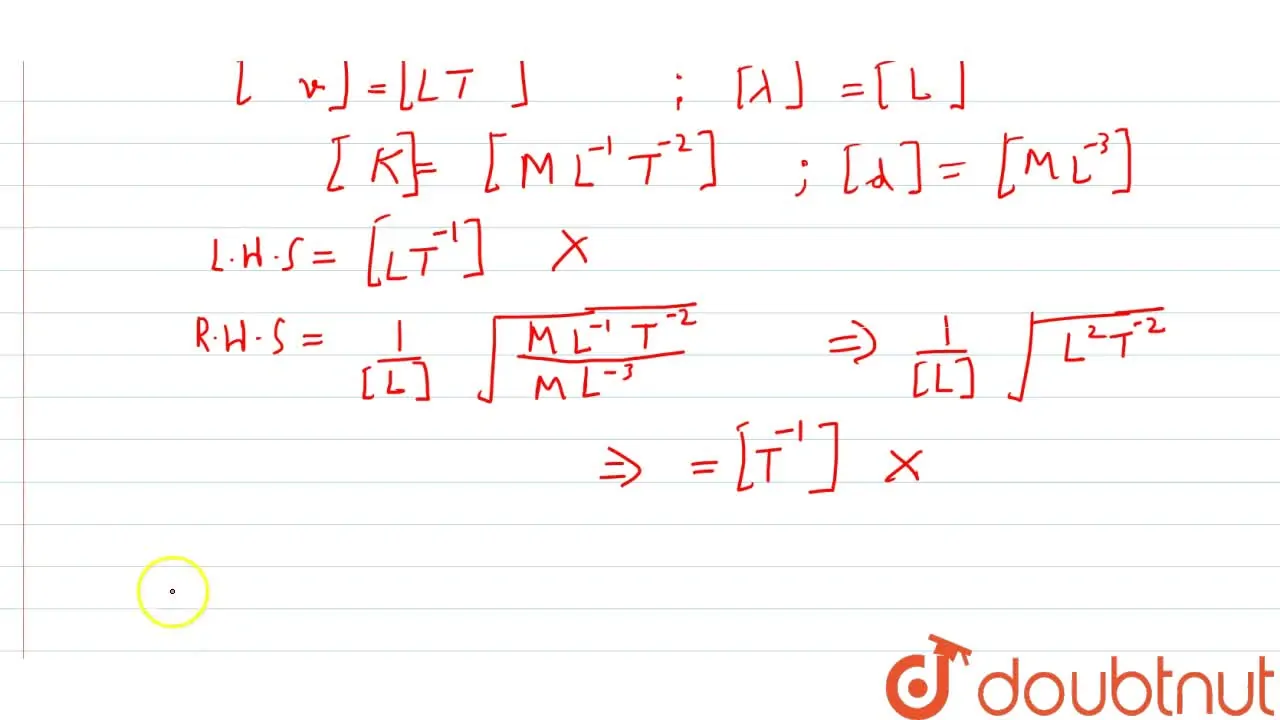 [ v] = [LT ] ; [λ] = [L]
[K] = [M L⁻¹ T⁻²] ; [d] = [M L⁻³]
L.H.S = [LT⁻¹] X
R.H.S = 1/[L] √(M L⁻¹ T⁻² / M L⁻³) ⇒ 1/[L] √(L² T⁻²)
⇒ = [T⁻¹] X
doubtnut